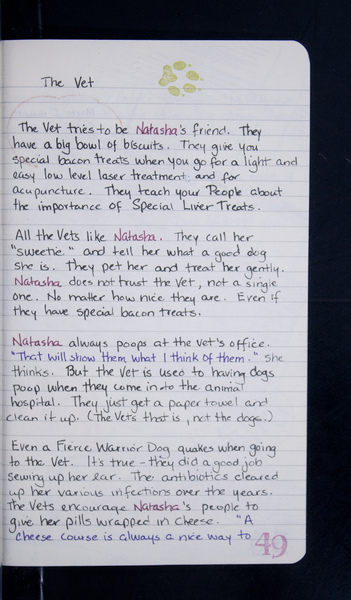 The Vet
The Vet tries to be Natasha's friend. They
have a big bowl of biscuits. They give you
special bacon treats when you go for a light and
easy low level laser treatment and for
acupuncture. They teach your People about
the importance of Special Liver Treats.
All the Vets like Natasha. They call her
"sweetie" and tell her what a good dog
she is. They pet her and treat her gently.
Natasha does not trust the Vet, not a single
one. No matter how nice they are. Even if
they have special bacon treats.
Natasha always poops at the vet's office.
"That will show them what I think of them." she
thinks. But the Vet is used to having dogs
poop when they come into the animal
hospital. They just get a paper towel and
clean it up. (The Vets that is, not the dogs.)
Even a Fierce Warrior Dog quakes when going
to the Vet. It's true - they did a good job
sewing up her ear. The antibiotics cleared
up her various infections over the years.
The Vets encourage Natasha's people to
give her pills wrapped in cheese. "A
cheese course is always a nice way to
49